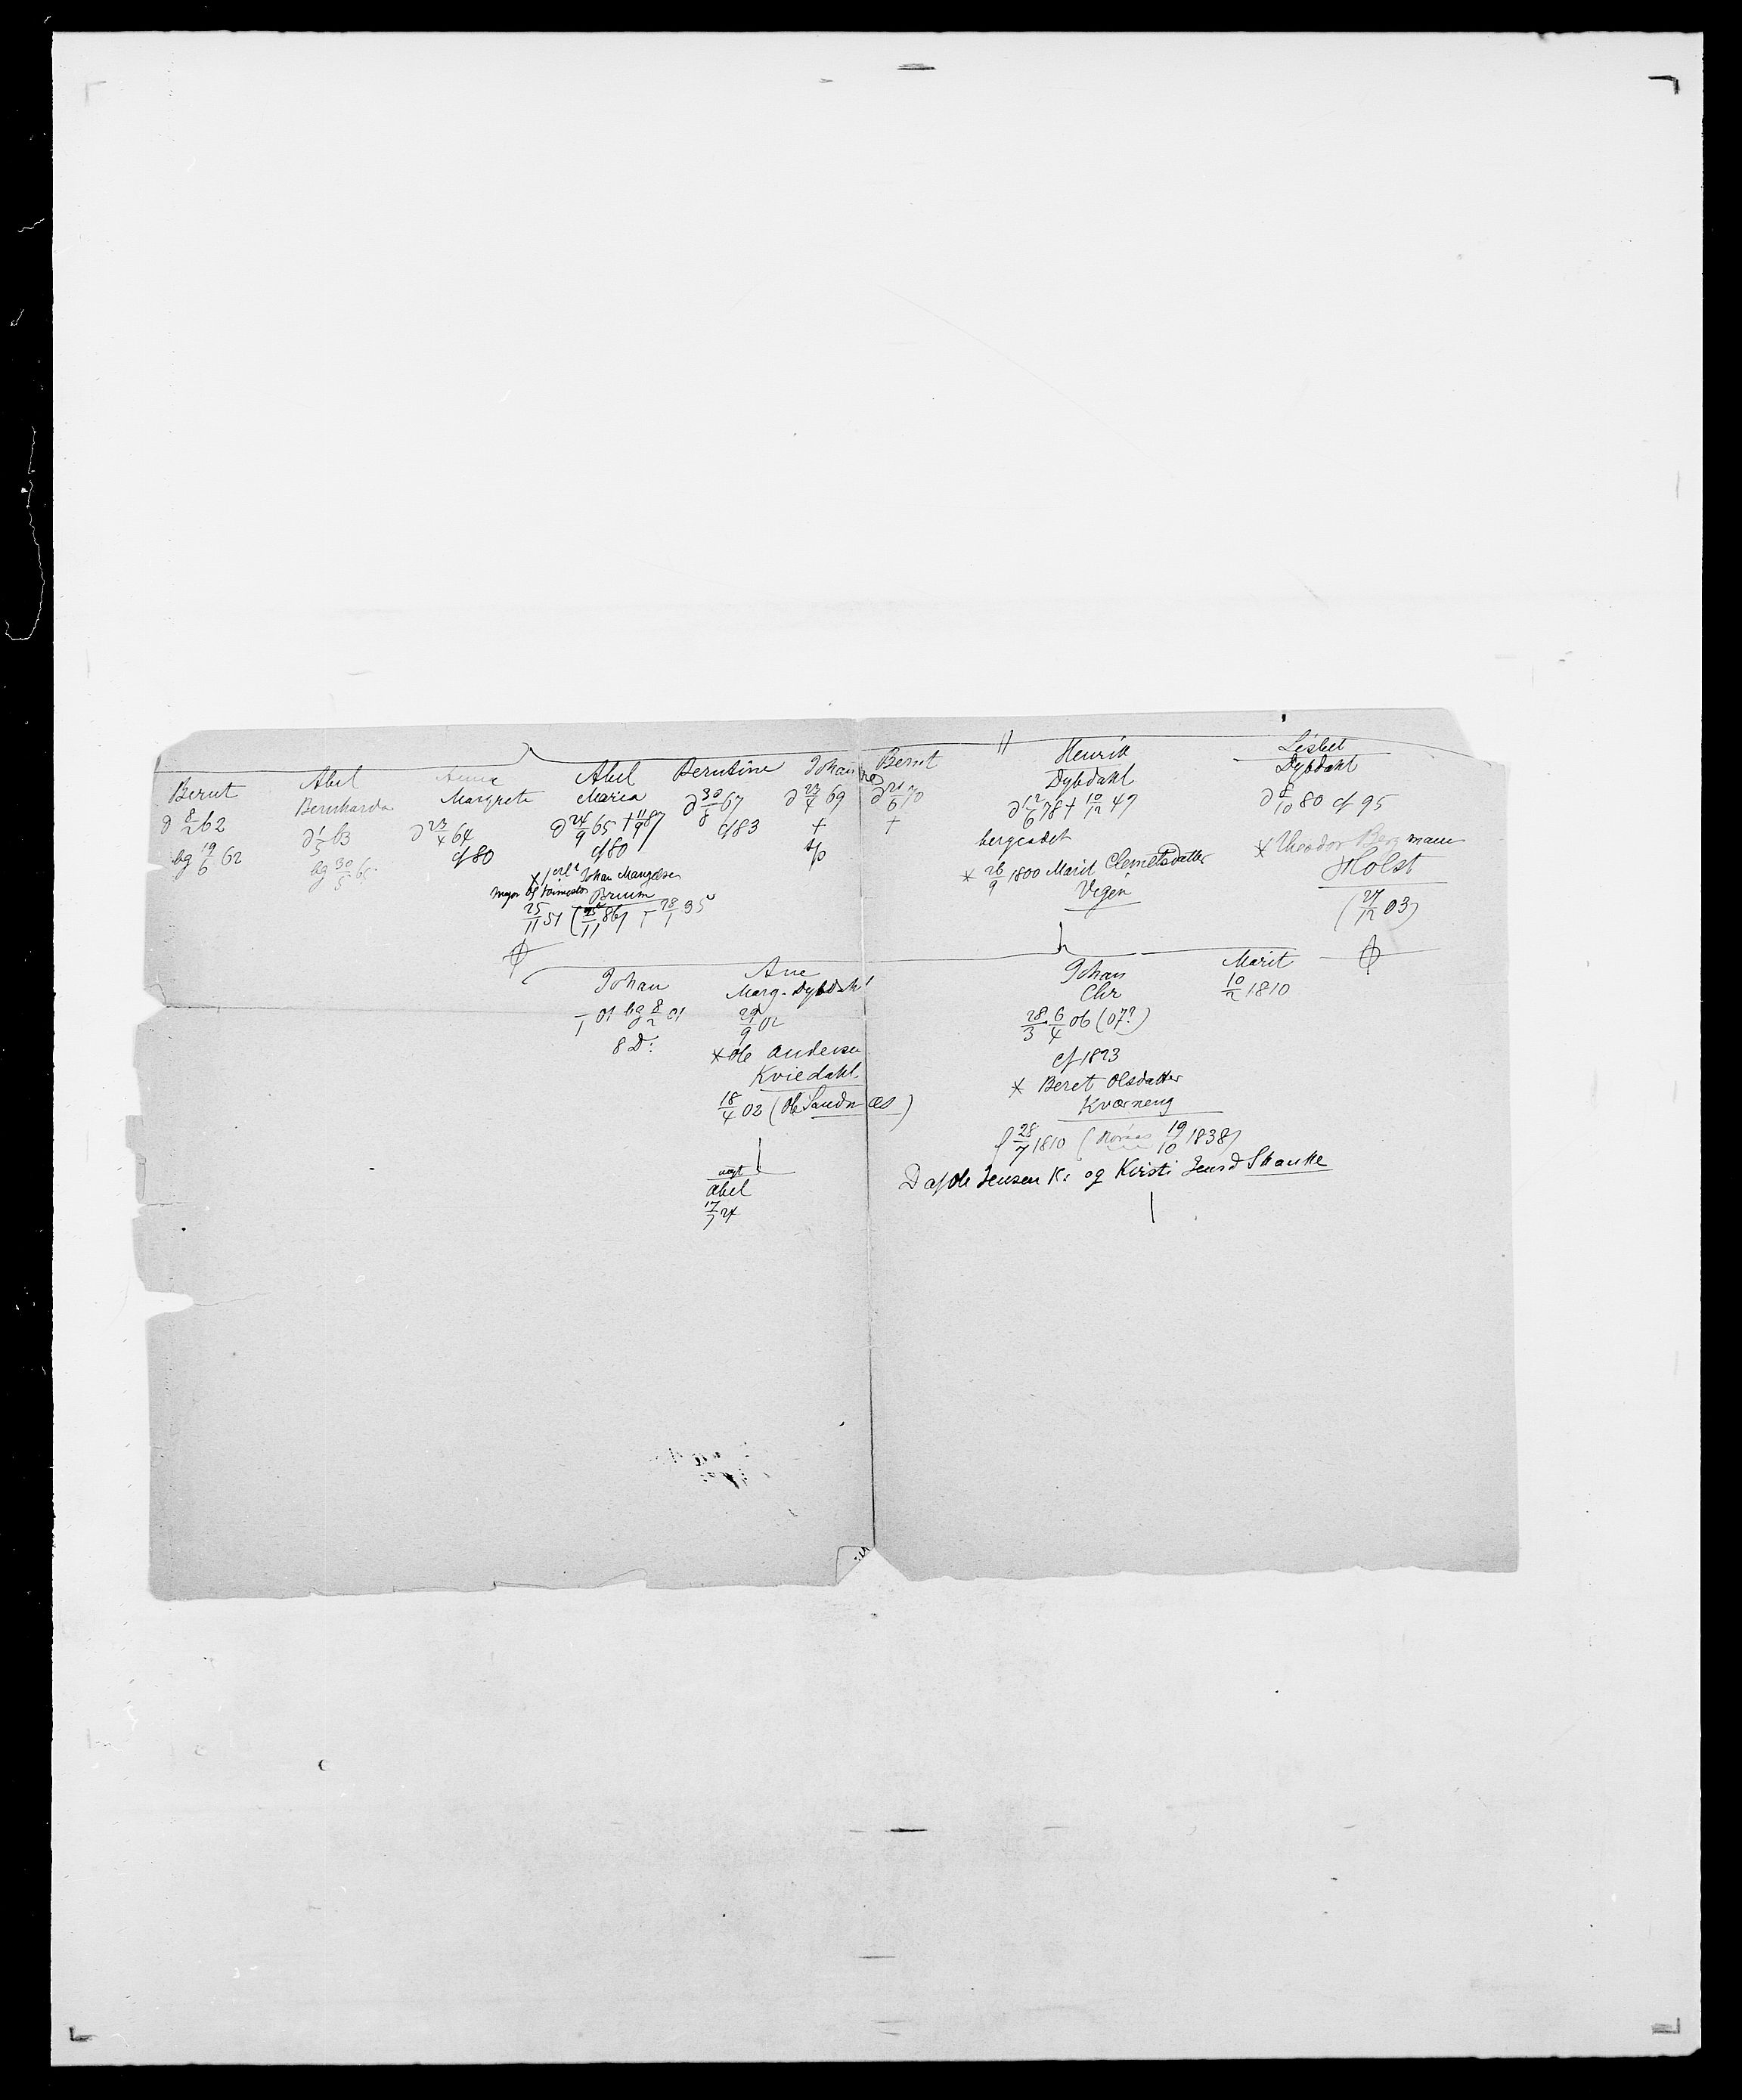 Bernt
∂ 8/2 62
bg 19/6 62
Abel
Bernharda
∂ 1/5 63
bg 30/5 65
Anna
Margrete
∂ 23/4 64
cf 80
Abel
Maria
∂ 24/9 65 + 11/9 87
cf 80
Johan Mangelsen
major og
Bruun
25/11 51 (25/11 86) 28/1 95
Berntine
∂ 30/8 67
cf 83
Johan
∂ 23/4 69
+
Bernt
∂ 21/6 70
+
Henrik
Dybdahl
∂ 12/6 78 + 10/12 47
bergcadet
* 26/9 1800 Marit Clemetsdatter
Vegen
Lisbet
Dybdahl
∂ 8/10 80 cf 95
* Theodor Bergmann
Holst
(27/12 03)
Johan
01 bg 8/2 01
8 D:
Ane
Marg. Dybdahl
29/9 02
* Ole Andersen
Kviedahl
18/4 02 (Ole Sandnæs)
Abel
17/7 24
Johan
Chr
28/3 6/4 06 (07?)
cf 1823
* Beret Olsdatter
Kværneng
f 28/7 1810 (Røraas 19/10 1838)
D af Ole Jensen K: og Kirsti Jensd Skanke
Marit
10/2 1810